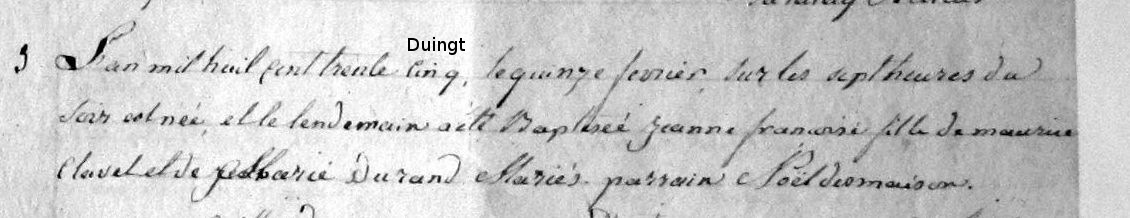 Duingt
3 L'an mil huit cent trente cinq, le quinze fevrier, sur les sept heures du
soir est née, et le lendemain a été Baptiseé jeanne françoise fille de maurice
Clavel et de Marie Durand Mariés. parrain Noël desmaison.